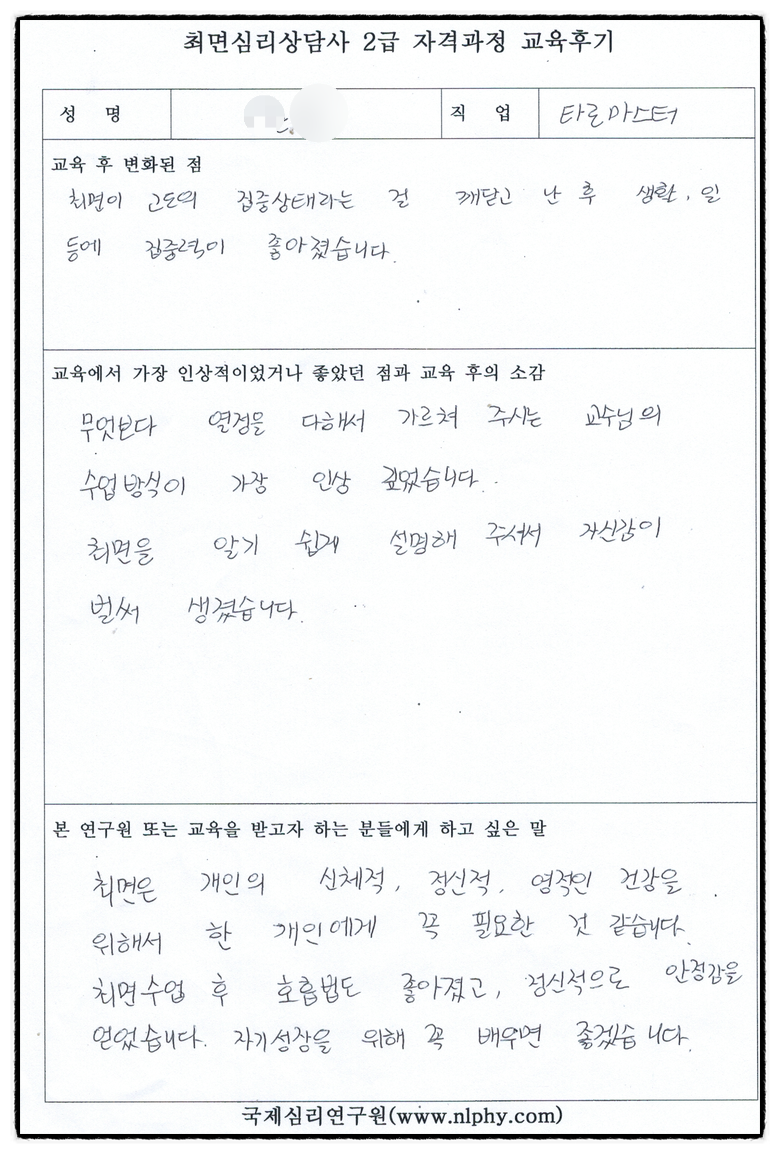 최면심리상담사 2급 자격과정 교육후기
성 명 직 업 타로마스터
교육 후 변화된 점
최면이 고도의 집중상태라는 걸 깨닫고 난 후 생활, 일
등에 집중력이 좋아졌습니다.
교육에서 가장 인상적이었거나 좋았던 점과 교육 후의 소감
무엇보다 열정을 다해서 가르쳐 주시는 교수님의
수업방식이 가장 인상 깊었습니다.
최면을 알기 쉽게 설명해 주셔서 자신감이
벌써 생겼습니다.
본 연구원 또는 교육을 받고자 하는 분들에게 하고 싶은 말
최면은 개인의 신체적, 정신적, 영적인 건강을
위해서 한 개인에게 꼭 필요한 것 같습니다.
최면수업 후 호흡법도 좋아졌고, 정신적으로 안정감을
얻었습니다. 자기성장을 위해 꼭 배우면 좋겠습니다.
국제심리연구원(www.nlphy.com)